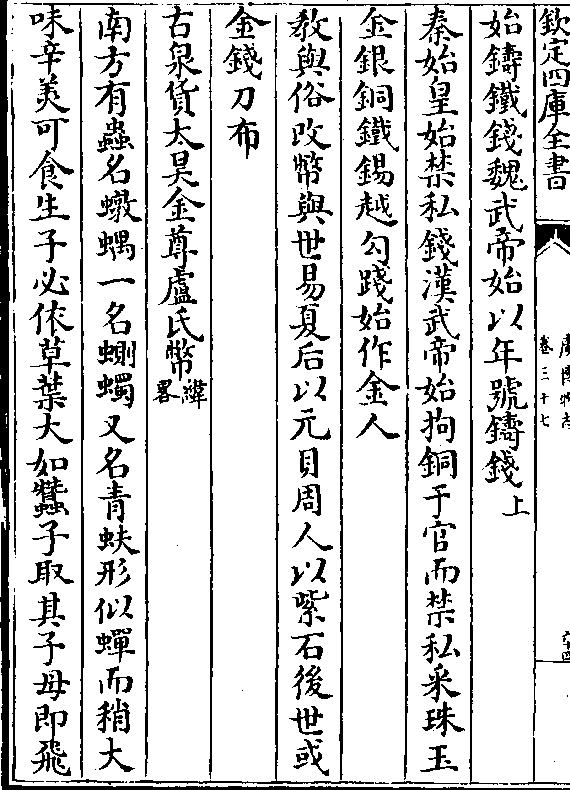 欽定四庫全書
廣博物志
卷三十七
始鑄鐵錢魏武帝始以年號鑄錢上
秦始皇始禁私錢漢武帝始拘銅于官而禁私采珠玉
金銀銅鐵錫越勾踐始作金人
教與俗改幣與世易夏后以元貝周人以紫石後世或
金錢刀布
古泉貨太昊金尊盧氏幣緯畧
南方有蟲名蠍蝺一名蝍蠋又名青蚨形似蟬而稍大
味辛美可食生子必依草葉大如蠶子取其子母即飛